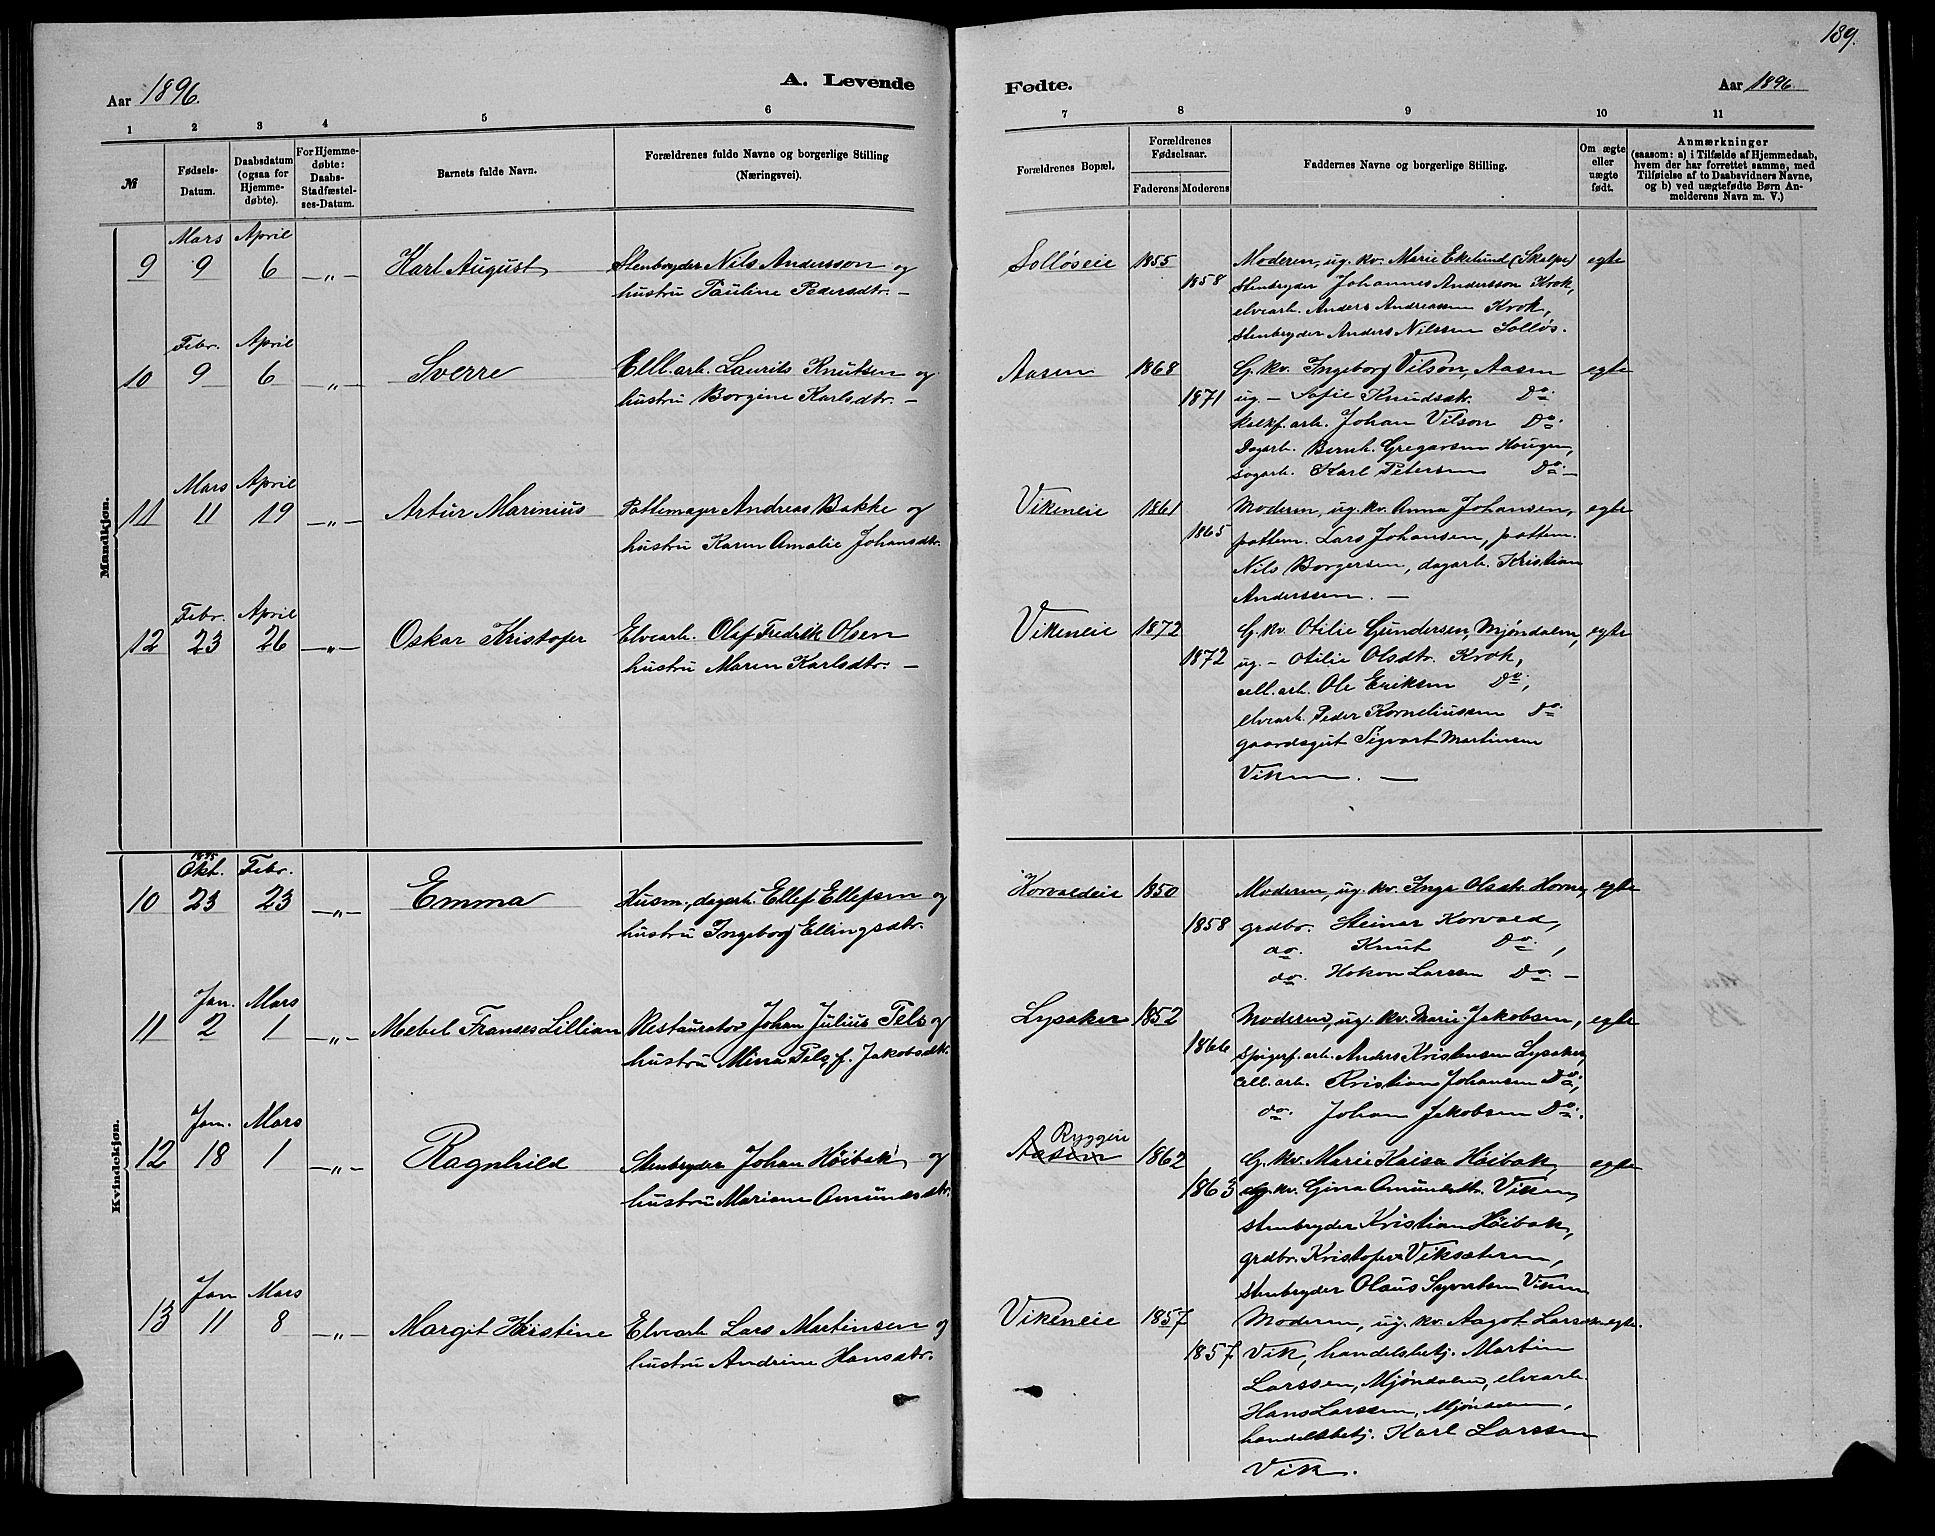 189.
Aar 1896.
A. Levende
Fødte.
Aar 1896.
1 2 3 4 5 6
7 8 9 10 11
№
Fødsels-
Datum.
Daabsdatum
(ogsaa for
Hjemme-
døbte).
For Hjemme-
døbte:
Daabs-
Stadfæstel-
ses-Datum.
Barnets fulde Navn.
Forældrenes fulde Navne og borgerlige Stilling
(Næringsvei).
Forældrenes Bopæl.
Forældrenes
Fødselsaar.
Faderens Moderens
Faddernes Navne og borgerlige Stilling.
Om ægte
eller
uægte
født.
Anmærkninger
(saasom: a) i Tilfælde af Hjemmedaab,
hvem der har forrettet samme, med
Tilføielse af to Daabsvidners Navne,
og b) ved uægtefødte Børn An-
melderens Navn m. V.)
Mandkjøn.
Mars April
9 9 6 —„— Karl August Stenbryder Nils Andersson og
hustru Pauline Pedersdtr. —
Solløseie 1855 1858
Moderen, ug. kv. Marie Ekelund (Skalpe) egte
Stenbryder Johannes Andersson Krok,
elvearb. Anders Andreassen Krok,
Stenbryder Anders Nilssen Solløs.
Febr. April
10 9 6 —„— Sverre Cell.arb. Laurits Knutsen og
hustru Borgine Karlsdtr. —
Aasen 1868 1871
G. kv. Ingeborg Vilson, Aasen egte
ug. — Sofie Knudsdtr. Do.
kalkf. arb. Johan Vilson Do.
Dagarb. Bernh. Gregersen Haugen,
sagarb. Karl Petersen Do. —
Mars April
11 11 19 —„— Artur Marinius Pottemager Andreas Bakke og
hustru Karen Amalie Johansdtr.
Vikeneie 1861 1865
Moderen, ug. kv. Anna Johansen, egte
pottem. Lars Johansen, pottem.
Nils Borgersen, dagarb. Kristian
Anderssen. —
Febr. April
12 23 26 —„— Oskar Kristofer Elvearb. Olaf Fredrik Olsen
hustru Maren Karlsdtr. —
Vikeneie 1872 1872
G. kv. Otilie Gundersen, Mjøndalen, egte
ug. — Otilie Olsdtr. Krok,
cell. arb. Ole Eriksen Do.,
elvearb. Peder Korneliussen Do.
gaardsgut Sigvart Martinsen
Viken. —
Kvindekjøn.
1895
Okt. Febr.
10 23 23 —„— Emma Husm., dagarb. Ellef Ellefsen og
hustru Ingeborg Ellingsdtr.
Korvaldeie 1850 1858
Moderen, ug. kv. Inga Olsdtr. Horne, egte
grdbr. Steinar Korvald,
do. Knut Do.,
do. Hokon Larssen Do. —
Jan. Mars
11 2 1 —„— Mebel Franses Lillian Restauratør Johan Julius Pels og
hustru Mina Pels, f. Jakobsdtr.
Lysaker 1852 1866
Moderen, ug. kv. Marie Jakobsen, egte
Spigerf. arb. Anders Kristensen Lysaker,
cell. arb. Kristian Johansen Do.,
do. Johan Jakobsen Do.
Jan. Mars
12 18 1 —„— Ragnhild Stenbryder Johan Høibak og
hustru Mariane Amundsdtr.
Ryggen
Aasen 1862 1863
G. kv. Marie Kaisa Høibak, egte
ug. kv. Gina Amundsdtr. Viken,
stenbryder Kristian Høibak,
grdbr. Kristofer Viksæteren,
stenbryder Olaus Syvertsen Viken
Jan Mars
13 11 8 —„— Margit Kristine Elvearb. Lars Martinsen og
hustru Andrine Hansdtr.
Vikeneie 1857 1857
Moderen, ug. kv. Aagot Larssen egte.
Vik, handelsbetj. Martin
Larssen, Mjøndalen, elvearb.
Hans Larssen, Mjøndalen,
handelsbetj. Karl Larssen
Vik.